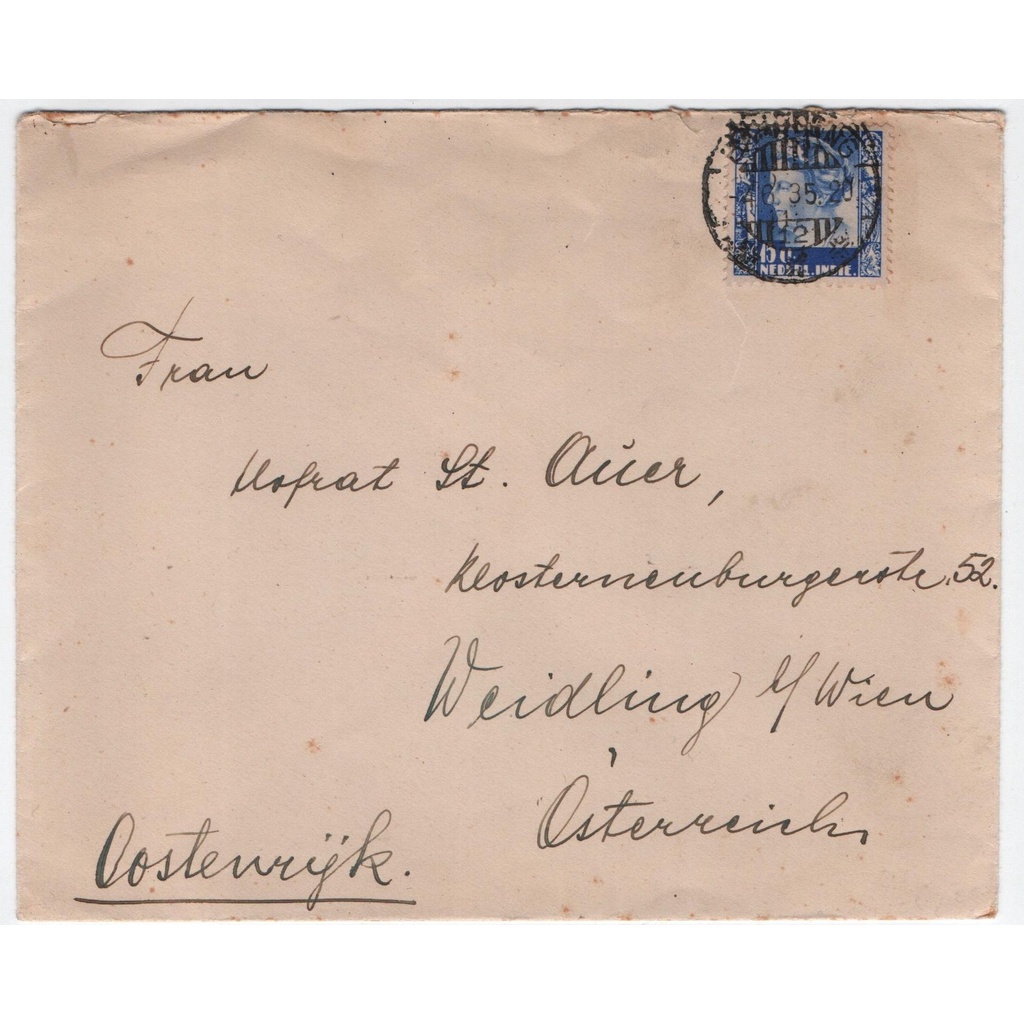 BANDOENG
-4.6.35.20
12
NEDERL. INDIE.
Frau
Hofrat St. Auer,
Klosterneuburgerstr. 52.
Weidling b/Wien
Österreich
Oostenrijk.